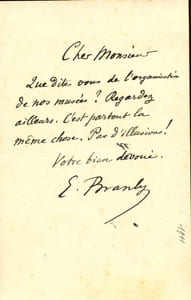 Cher Monsieur
Que dites vous de l'organisation
de nos musées ? Regardez
ailleurs. C'est partout la
même chose. Pas d'illusions !
Votre bien dévoué.
E. Branly